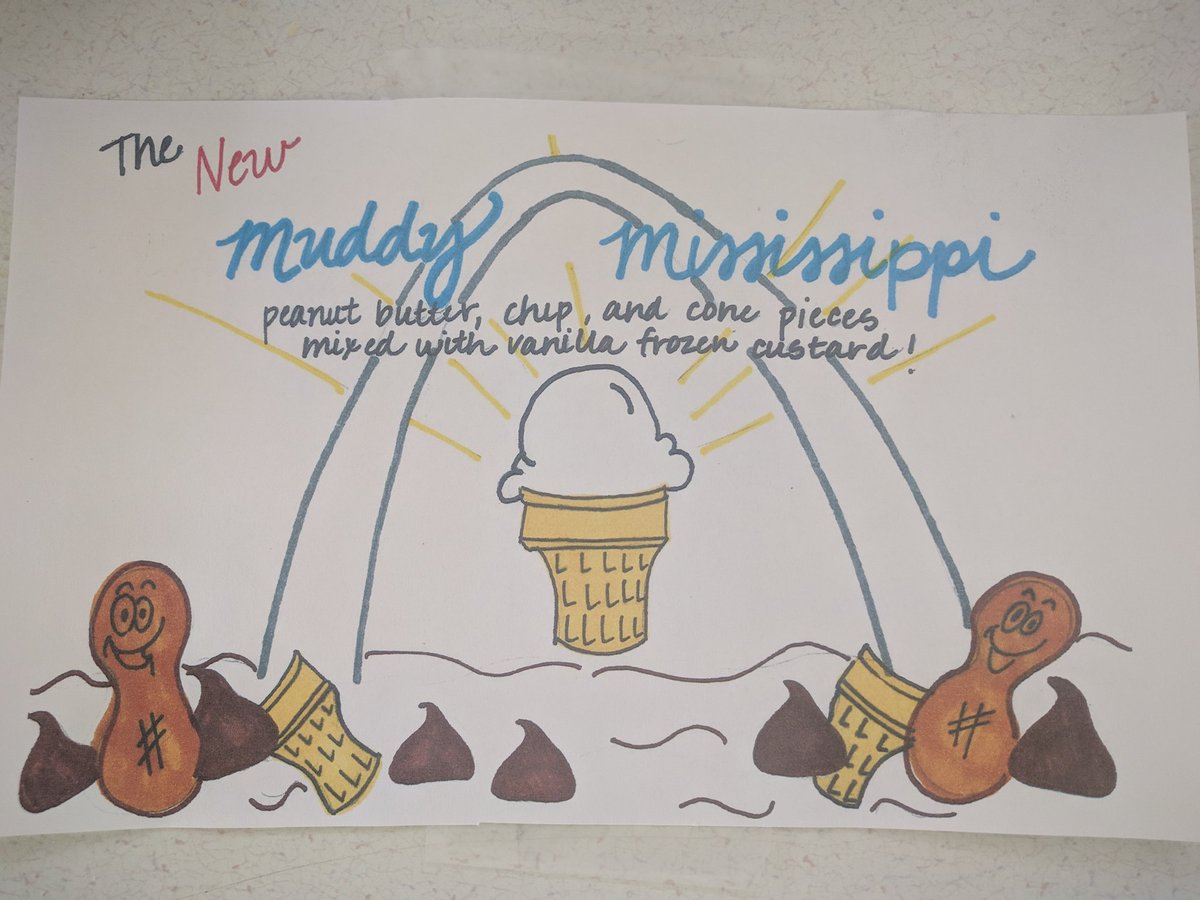 The New
muddy mississippi
peanut butter, chip, and cone pieces
mixed with vanilla frozen custard!